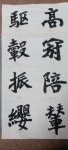 高冠陪輦
驅轂振纓